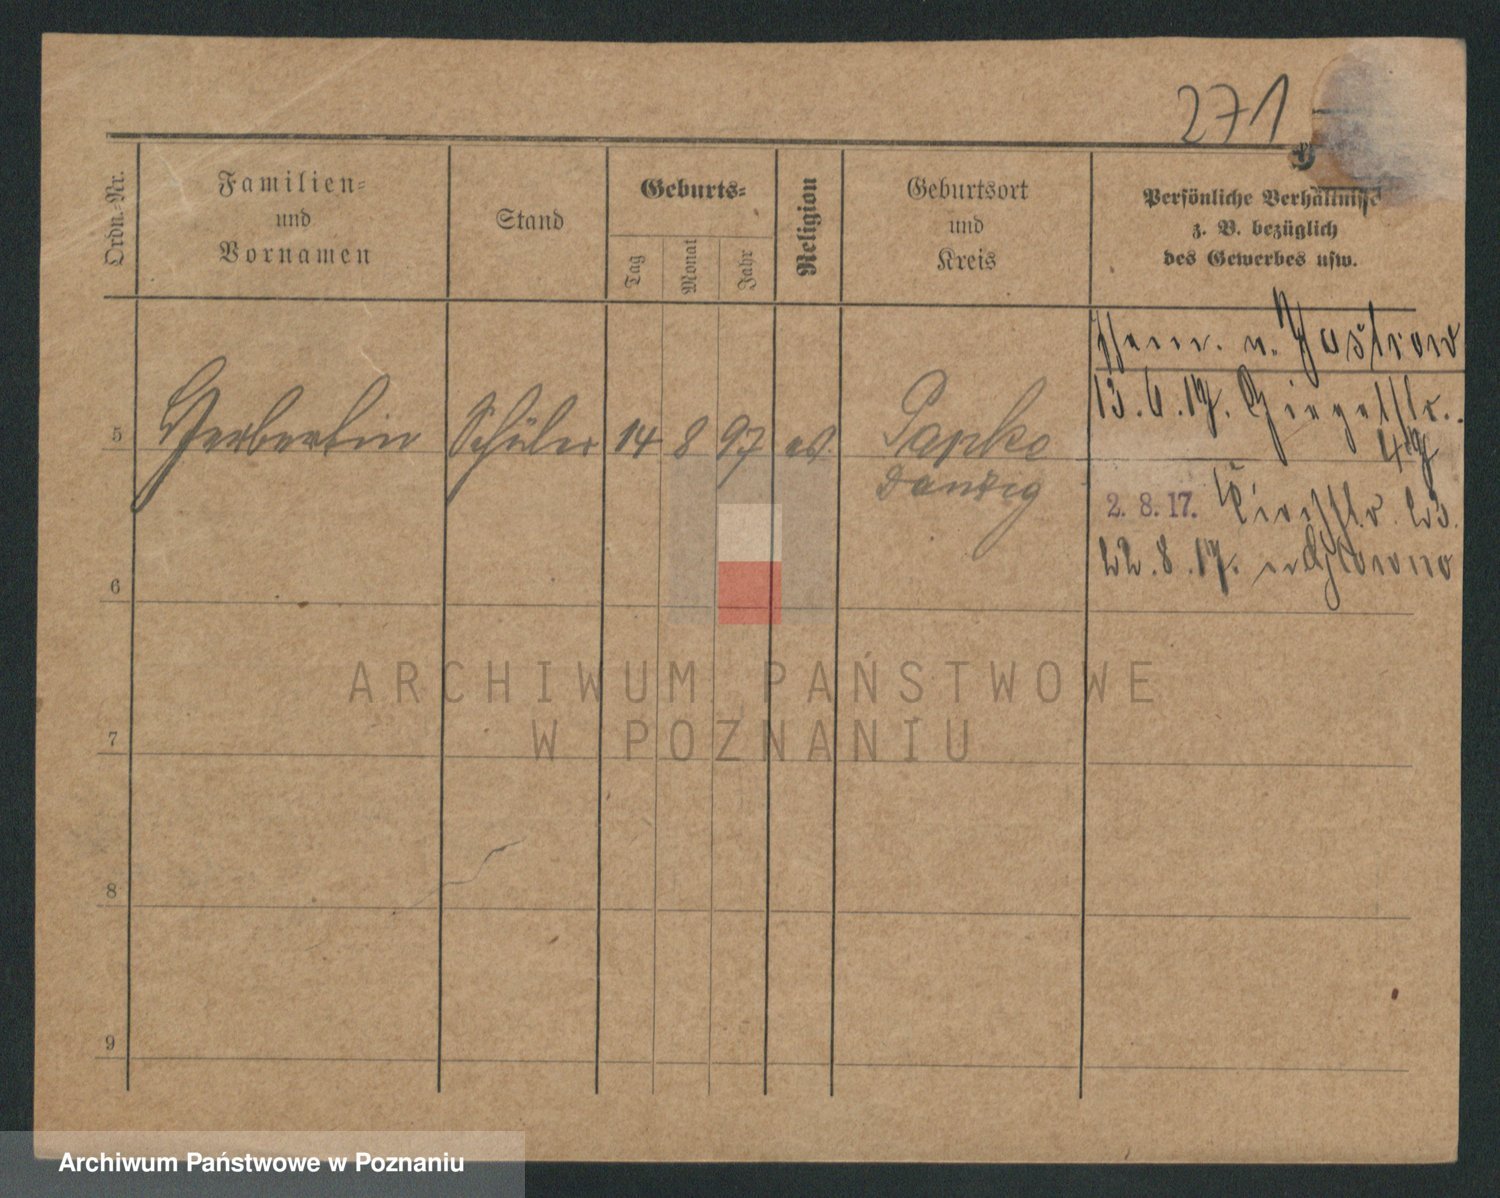 271
Ordn.-Nr.
Familien-
und
Vornamen
Stand
Geburts-
Tag
Monat
Jahr
Religion
Geburtsort
und
Kreis
Persönliche Verhältnisse
z. B. bezüglich
des Gewerbes usw.
v. Jastrow
13.6.17. Ziegelstr.
49
5
Schüler
14
8
97
ev.
Danzig
2. 8. 17. Kirchstr. 23.
22.8.17.
6
7
8
9
ARCHIWUM PAŃSTWOWE
W POZNANIU
Archiwum Państwowe w Poznaniu